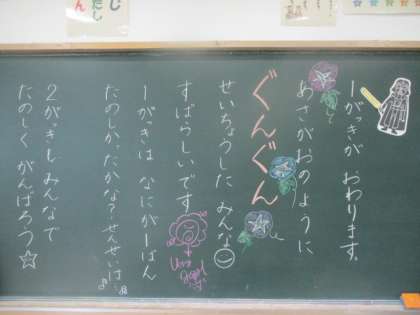 1がっきが おわります。
あさがおのように
ぐんぐん
せいちょうした みんな
すばらしいです
1がっきは なにがいちばん
たのしかったかな?せんせいは…
2がっきも みんなで
たのしく がんばろう☆